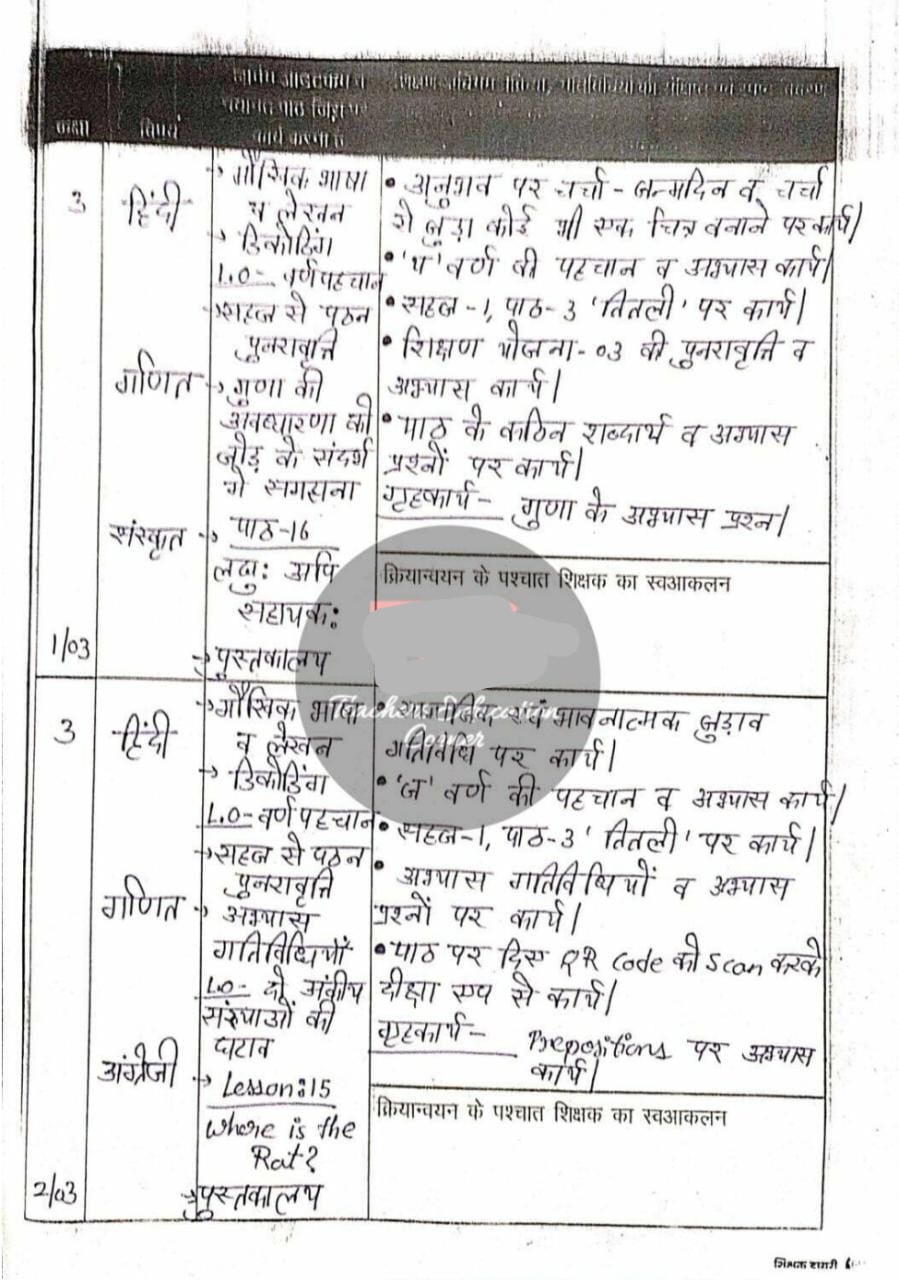 कक्षा
विषय
कार्य करना है
3
हिंदी
→ मौखिक भाषा
व लेखन
→ डिकोडिंग
L.O- वर्ण पहचान
→ सहज से पठन
पुनरावृत्ति
गणित
→ गुणा की
अवधारणा को
जोड़ के संदर्भ
में समझना
संस्कृत
→ पाठ-16
लघु: अपि
सहायक:
→ पुस्तकालय
1/03
• अनुभव पर चर्चा - जन्मदिन व चर्चा
से जुड़ा कोई भी एक चित्र बनाने पर कार्य।
• वर्ण की पहचान व अभ्यास कार्य।
• सहज-1, पाठ-3 'तितली' पर कार्य।
• शिक्षण योजना-03 की पुनरावृत्ति व
अभ्यास कार्य।
• पाठ के कठिन शब्दार्थ व अभ्यास
प्रश्नों पर कार्य।
गृहकार्य- गुणा के अभ्यास प्रश्न।
क्रियान्वयन के पश्चात शिक्षक का स्वआकलन
3
हिंदी
→ मौखिक भाषा
व लेखन
→ डिकोडिंग
L.O- वर्ण पहचान
→ सहज से पठन
पुनरावृत्ति
गणित
→ अभ्यास
गतिविधियाँ
L.O- दो अंकीय
संख्याओं की
घटाव
अंग्रेजी
→ Lesson:15
Where is the
Rat?
→ पुस्तकालय
2/03
• एवं भावनात्मक जुड़ाव
गतिविधि पर कार्य।
• 'ज' वर्ण की पहचान व अभ्यास कार्य।
• सहज-1, पाठ-3 'तितली' पर कार्य।
• अभ्यास गतिविधियों व अभ्यास
प्रश्नों पर कार्य।
• पाठ पर दिए QR Code को Scan करके
दीक्षा एप से कार्य।
गृहकार्य- Prepositions पर अभ्यास
कार्य।
क्रियान्वयन के पश्चात शिक्षक का स्वआकलन
Teachers Education
Corner
शिक्षक डायरी